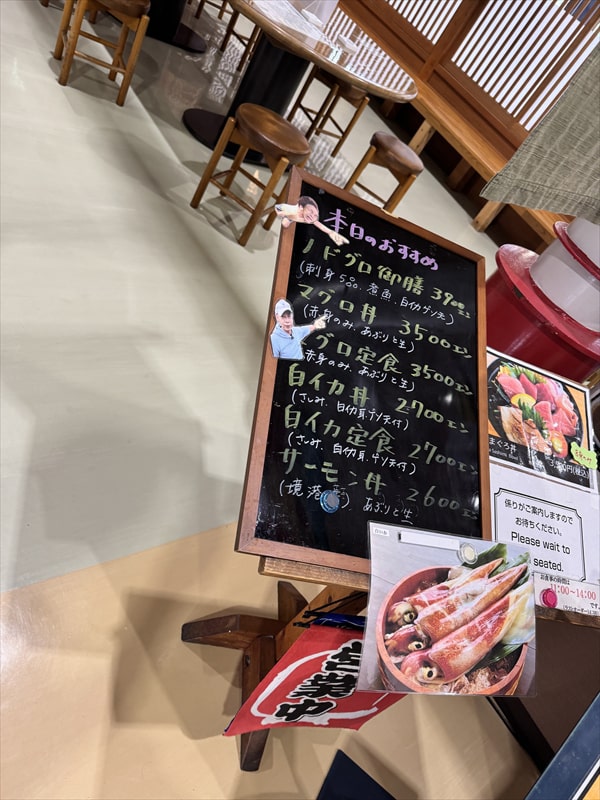 本日のおすすめ
ノドグロ御膳 3900エン
(刺身5品.煮魚.白イカゲソ天)
マグロ丼 3500エン
(赤身のみ.あぶりと生)
グロ定食 3500エン
赤身のみ.あぶりと生)
白イカ丼 2700エン
(さしみ.白イカ耳.ゲソ天付)
白イカ定食 2700エン
(さしみ.白イカ耳.ゲソ天付)
サーモン丼 2600エン
(境港 あぶりと生
まぐろ丼
係りがご案内しますので
お待ちください。
Please wait to
seated.
お食事の時間は
11:00~14:00
です。
営業中